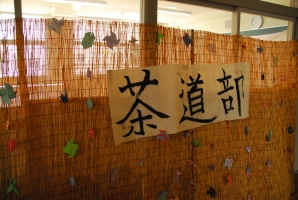 茶道部